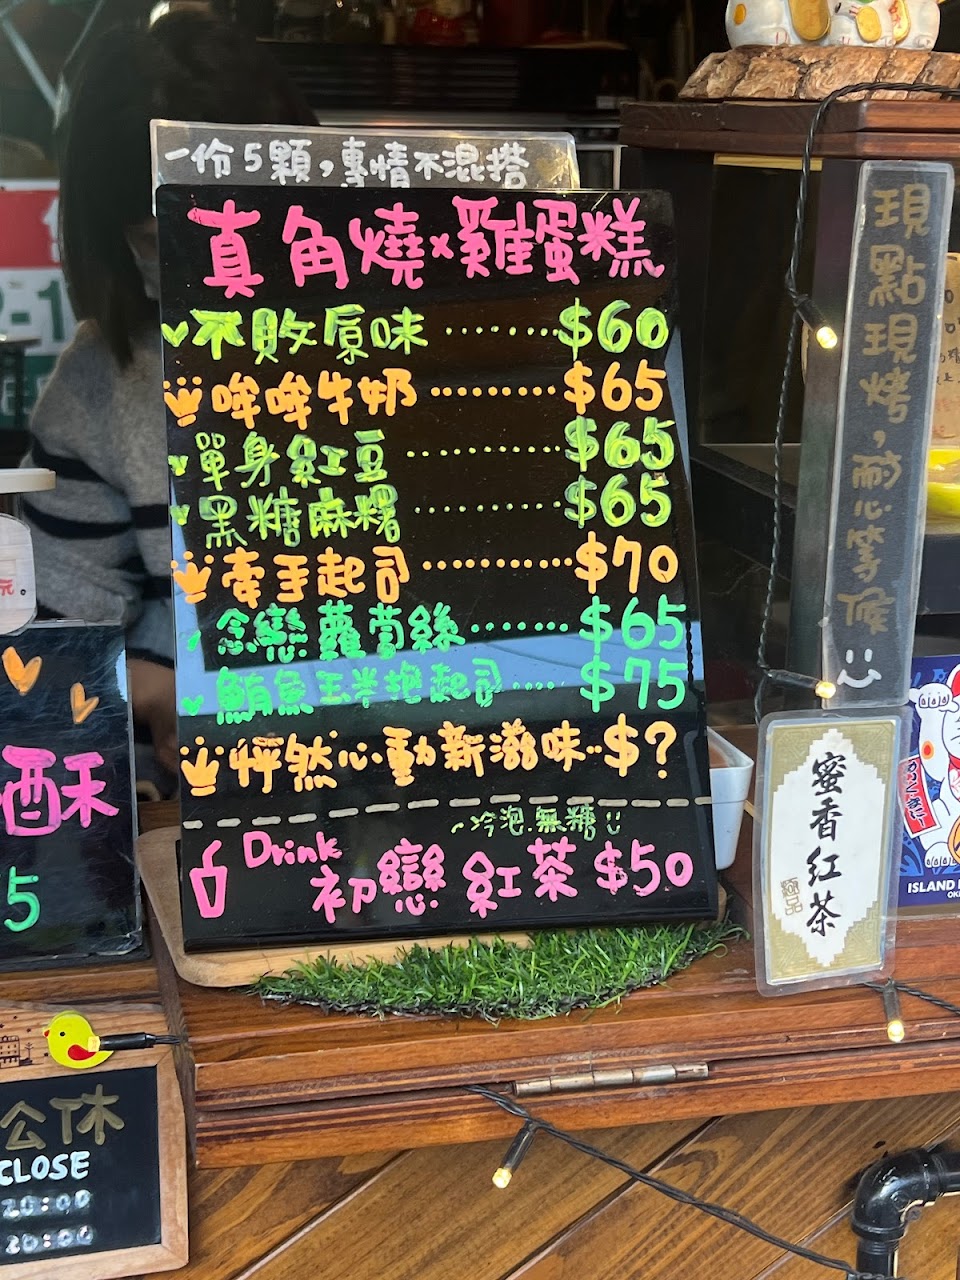 一份5顆，專情不混搭
真角燒×雞蛋糕
不敗原味········$60
哞哞牛奶·········$65
單身紅豆·········$65
黑糖麻糬·········$65
牽手起司··········$70
念戀蘿蔔絲·······$65
鮪魚玉米起司·····$75
怦然心動新滋味··$?
冷泡.無糖
Drink
初戀 紅茶 $50
現點現烤，耐心等候
蜜香紅茶
極品
ISLAND
酥
5
公休
CLOSE